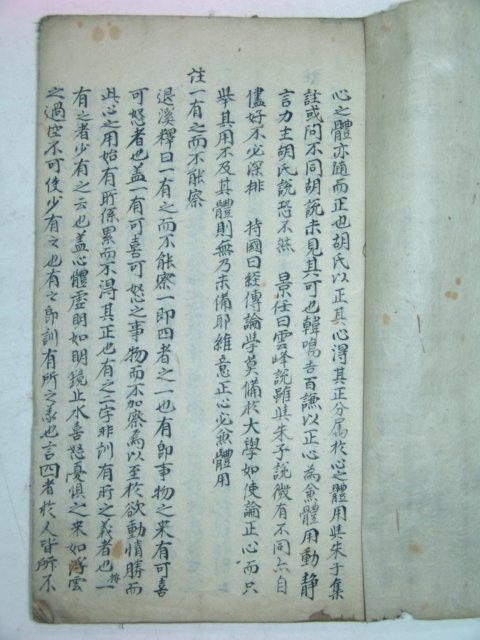 心之體亦隨而正也胡氏以正其心得其正分属於心之體用與朱子集
註或問不同胡說未見其可也韓鳴吉百謙以正心為兼體用動静
言力主胡氏說恐不然　景任曰雲峰說雖與朱子說微有不同亦自
儘好不必深排　持國曰經傳論學莫備於大學如使論正心而只
舉其用不及其體則無乃未備耶維意正心必兼體用
註一有之而不能察
退溪釋曰一有之而不能察一即四者之一也有即事物之來有可喜
可怒者也盖一有可喜可怒之事物而不加察焉以至於欲動情勝而
此心之用始有所係累而不得其正也有之二字非訓有所之義者也一
有之者少有之云也盖心體虛明如明鏡止水喜怒憂惧之來如浮雲
之過空不可使少有之也有之即訓有所之㨾也言四者於人皆所不